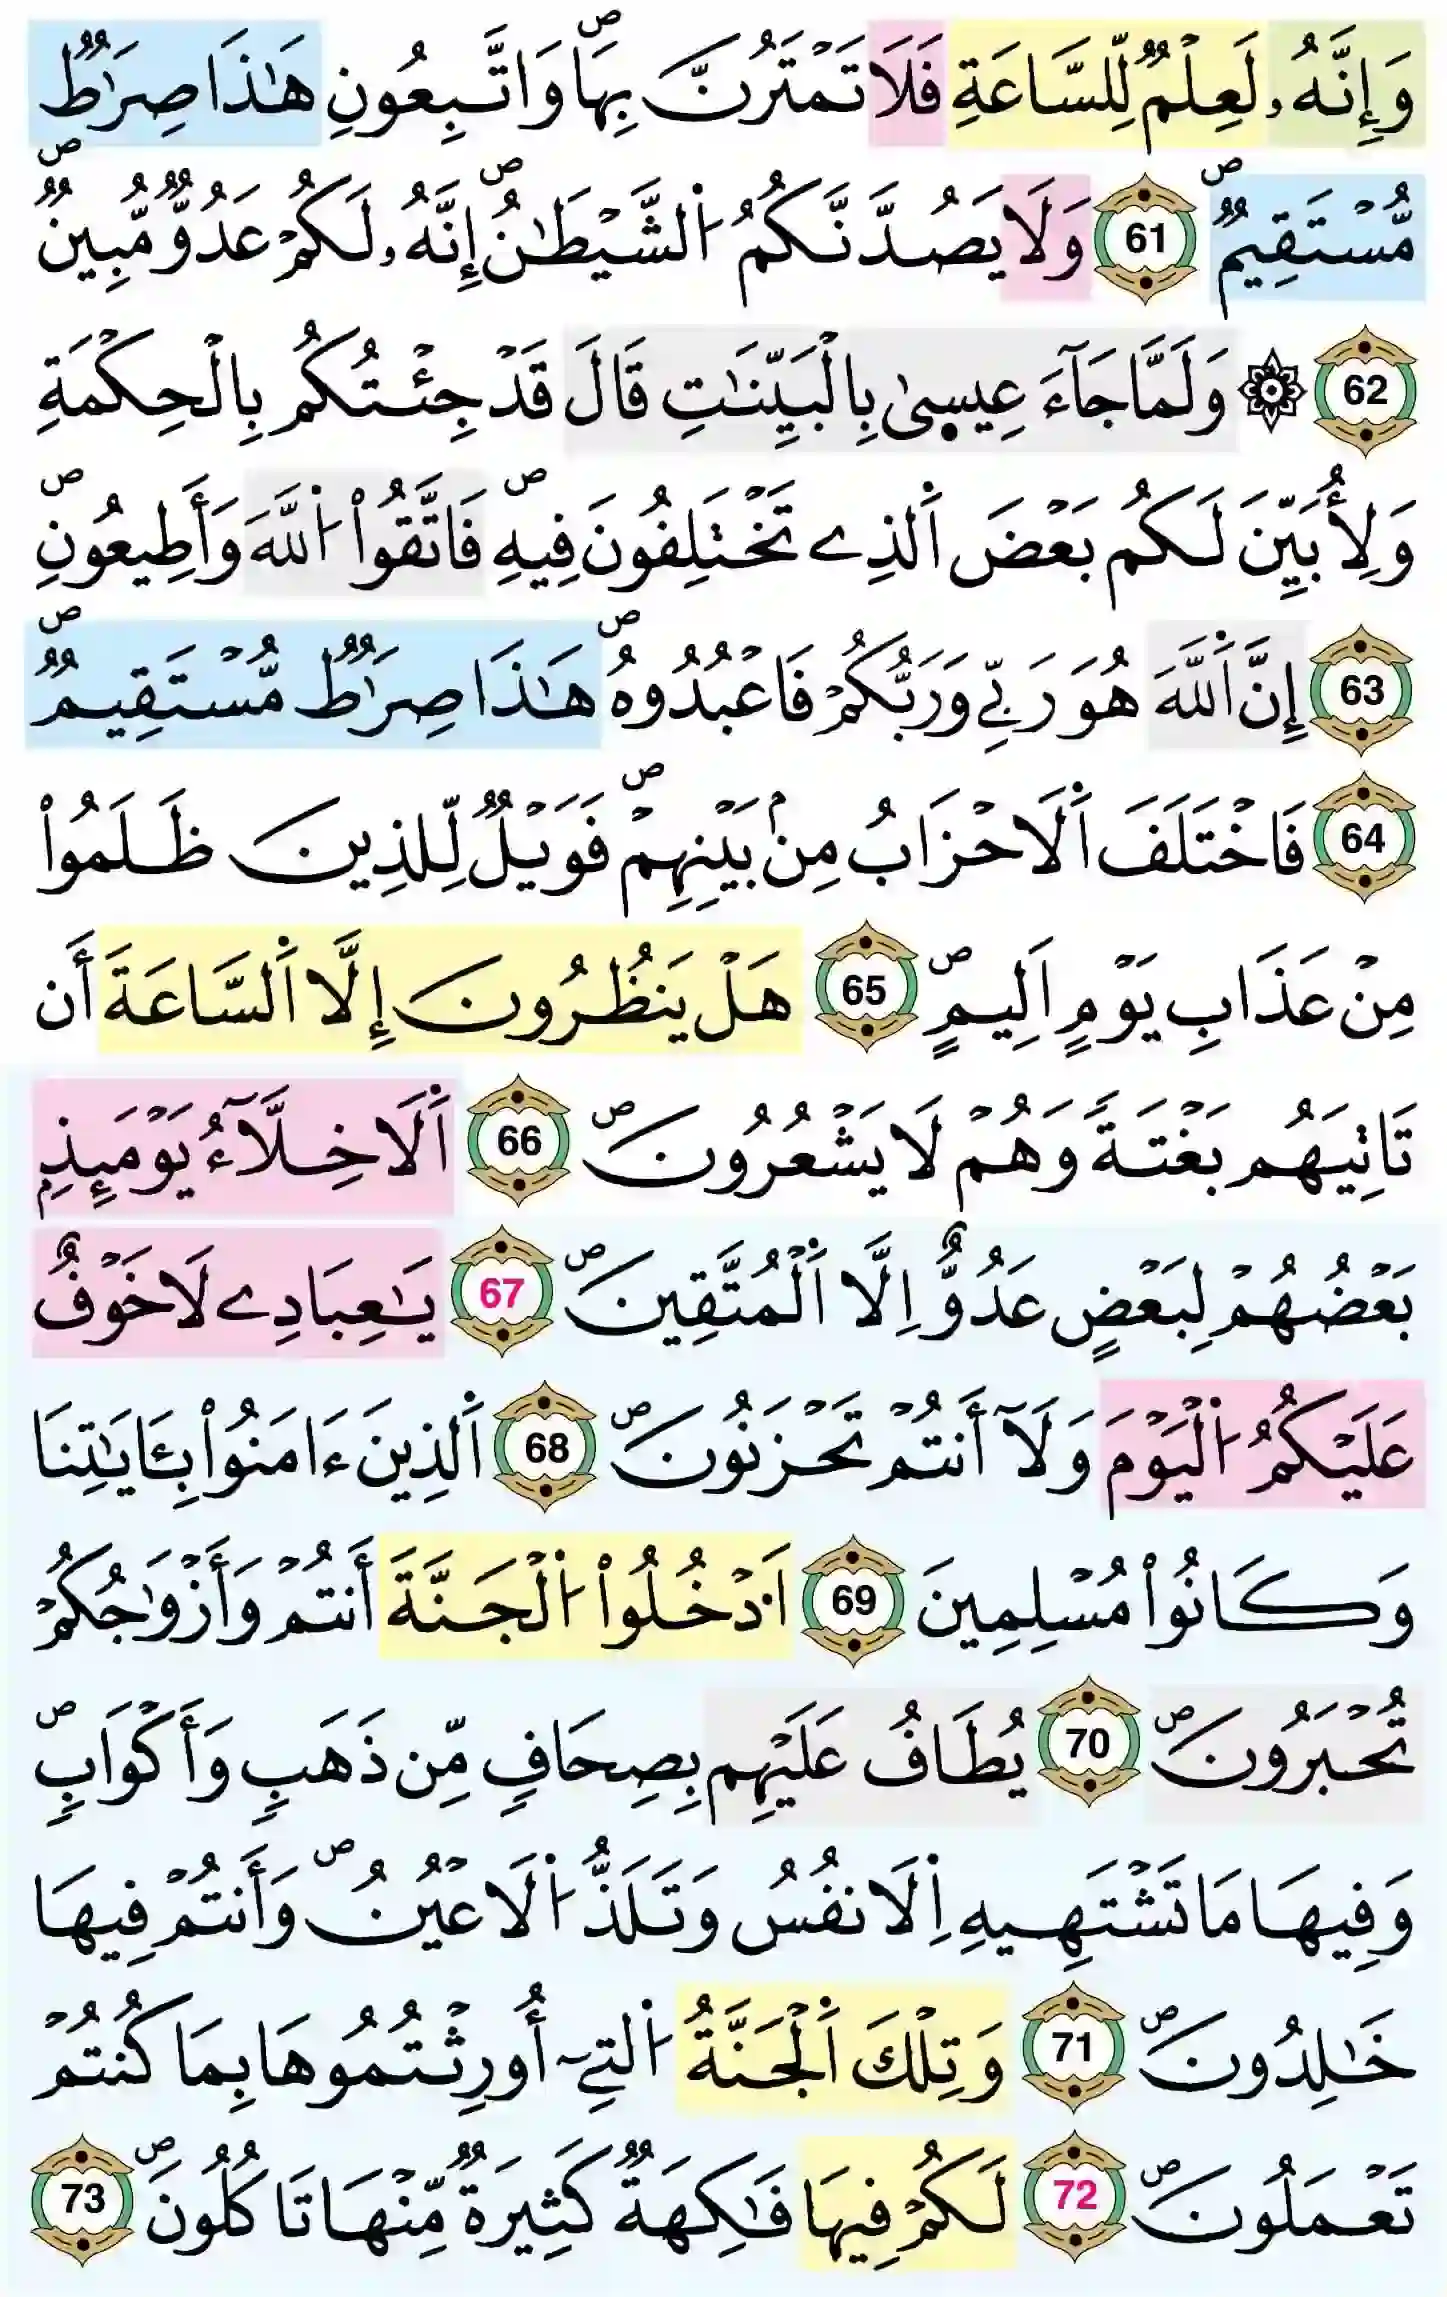 وَإِنَّهُۥ لَعِلْمٞ لِّلسَّاعَةِ فَلَا تَمْتَرُنَّ بِهَاۖ وَاتَّبِعُونِۖ هَٰذَا صِرَٰطٞ
مُّسْتَقِيمٞۖ 61 وَلَا يَصُدَّنَّكُمُ اُ۬لشَّيْطَٰنُۖ إِنَّهُۥ لَكُمْ عَدُوّٞ مُّبِينٞۖ
62 ۞ وَلَمَّا جَآءَ عِيس۪ىٰ بِالْبَيِّنَٰتِ قَالَ قَدْ جِئْتُكُم بِالْحِكْمَةِ
وَلِأُبَيِّنَ لَكُم بَعْضَ اَ۬لذِے تَخْتَلِفُونَ فِيهِۖ فَاتَّقُوا۟ اُ۬للَّهَ وَأَطِيعُونِۖ
63 إِنَّ اَ۬للَّهَ هُوَ رَبِّے وَرَبُّكُمْ فَاعْبُدُوهُۖ هَٰذَا صِرَٰطٞ مُّسْتَقِيمٞۖ
64 فَاخْتَلَفَ اَ۬لَاحْزَابُ مِنۢ بَيْنِهِمْۖ فَوَيْلٞ لِّلذِينَ ظَلَمُوا۟
مِنْ عَذَابِ يَوْمٍ اَلِيمٍۖ 65 هَلْ يَنظُرُونَ إِلَّا اَ۬لسَّاعَةَ أَن
تَاتِيَهُم بَغْتَةٗ وَهُمْ لَا يَشْعُرُونَۖ 66 اَ۬لَاخِلَّآءُ يَوْمَئِذِۢ
بَعْضُهُمْ لِبَعْضٍ عَدُوٌّ اِلَّا اَ۬لْمُتَّقِينَۖ 67 يَٰعِبَادِے لَا خَوْفٌ
عَلَيْكُمُ اُ۬لْيَوْمَ وَلَآ أَنتُمْ تَحْزَنُونَۖ 68 اَ۬لذِينَ ءَامَنُوا۟ بِـَٔايَٰتِنَا
وَكَانُوا۟ مُسْلِمِينَ 69 اَ۟دْخُلُوا۟ اُ۬لْجَنَّةَ أَنتُمْ وَأَزْوَٰجُكُمْ
تُحْبَرُونَۖ 70 يُطَافُ عَلَيْهِم بِصِحَافٖ مِّن ذَهَبٖ وَأَكْوَابٖۖ
وَفِيهَا مَا تَشْتَهِيهِ اِ۬لَانفُسُ وَتَلَذُّ اُ۬لَاعْيُنُۖ وَأَنتُمْ فِيهَا
خَٰلِدُونَۖ 71 وَتِلْكَ اَ۬لْجَنَّةُ اُ۬لتِےٓ أُورِثْتُمُوهَا بِمَا كُنتُمْ
تَعْمَلُونَۖ 72 لَكُمْ فِيهَا فَٰكِهَةٞ كَثِيرَةٞ مِّنْهَا تَاكُلُونَۖ 73